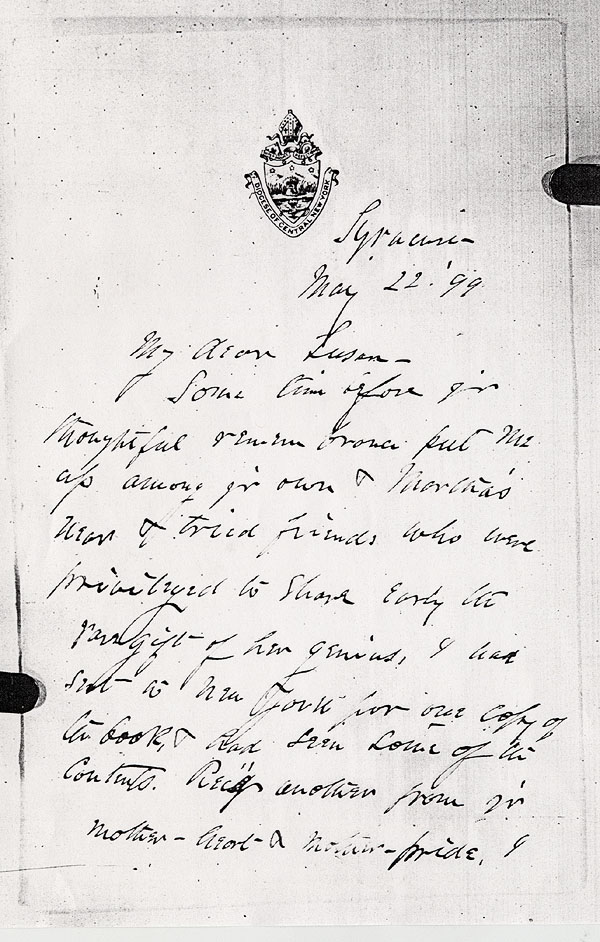 DIOCESE OF CENTRAL NEW YORK
Syracuse
May 22. '99
My dear Susan –
Some time before yr
thoughtful remembrance put me
up among yr own & Martha's
near & tried friends who were
privileged to share early the
rare gift of her genius, I had
sent to New York for one copy of
the book, & had seen some of the
contents. Rec'g another from yr
mother-heart & mother-pride, I